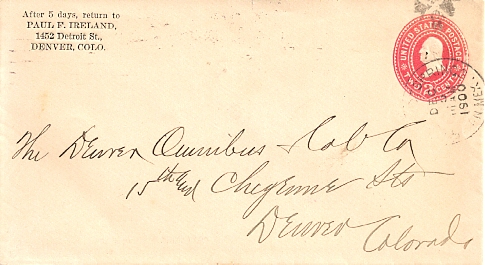 After 5 days, return to
PAUL F. IRELAND,
1452 Detroit St.,
DENVER, COLO.
UNITED STATES POSTAGE
TWO 2 CENTS
1900
The Denver Omnibus & Cab Co
15th and Cheyenne Sts
Denver
Colorado